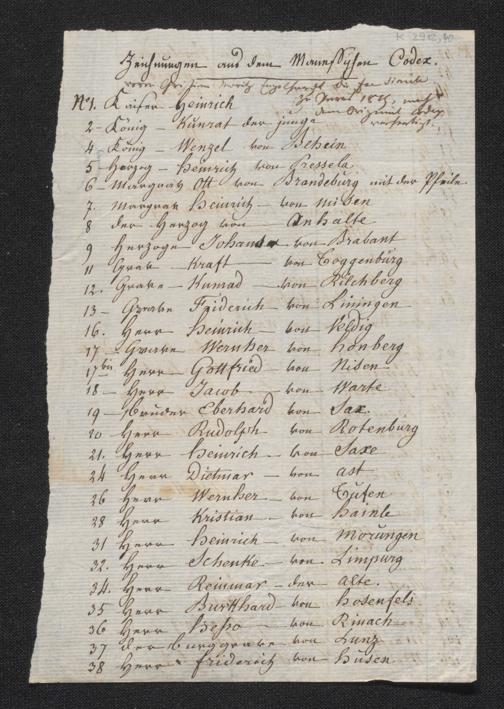 K 2912,40
Zeichnungen aus dem Manessischen Codex.
von
Paris 1815, nach
No1. Kaiser Heinrich
dem Original Codex
2 – König – Kunrat der junge
verfertigt.
4 – König – Wenzel von Behein
5 Herzog – Heinrich von Pressela
6 – Margraf Ott von Brandeburg mit der Pfeile
7. Margrak Heinrich – von Misen
8 der Herzog von – Anhalte
9 Herzoge Johans – von Brabant
11 Grav – Kraft – von Toggenburg
12. Grave – Kunrad – von Kilchberg
13 – Grave Friderich – von Liningen
16. Herr Heinrich – von Veldig
17 – Grave Wernher – von Honberg
17bis Herr – Gottfried von Nisen
18 – Herr – Jacob – von Warte
19 – Bruder Eberhard von Sax.
20 Herr Rudolph – von Rotenburg
21. Herr Heinrich – von Saxe
24 Herr Dietmar – von ast
26 Herr Wernher – von Tufen
28 Herr Kristian – von Hamle
31 Herr Heinrich – von Morungen
32. Herr Schenke – von Limpurg
34. Herr Reinmar – der alte.
35 Herr Burkhard von Hosenfels
36 Herr Hesso – von Rinach
37 der burggrave von Lunz
38 Herr – friderich von Husen